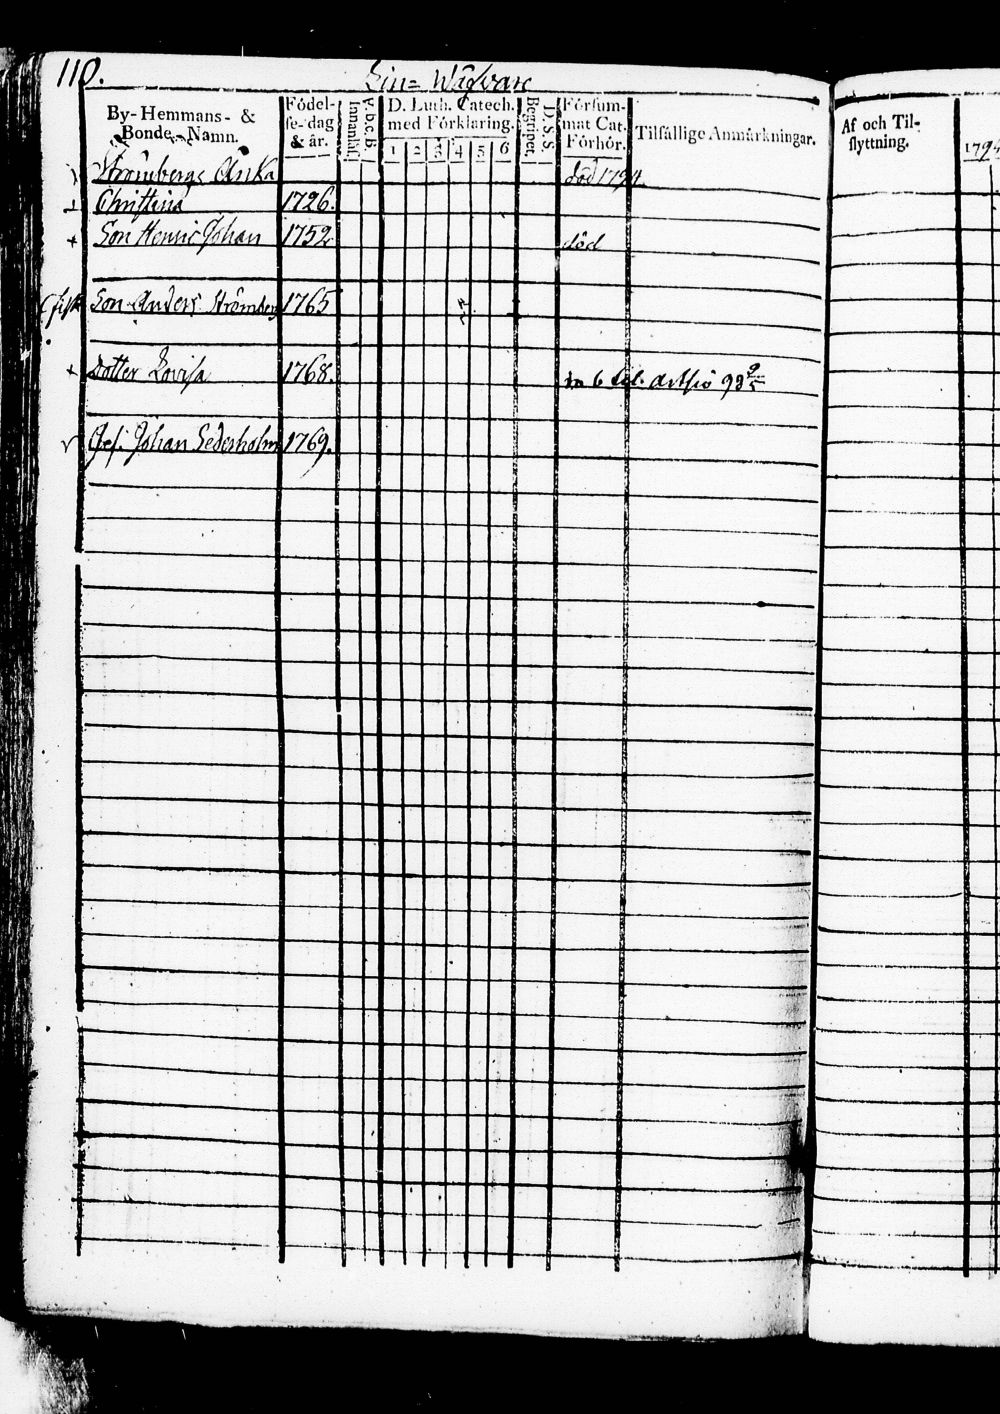 110.
Lin= Wäfvare
By-Hemmans- & Bonde-Namn.
Födelse-dag & år.
Innanläs.
A.b.c.B.
D. Luth. Catech. med Förklaring.
1 2 3 4 5 6
Begripet.
D. S. S.
Försummat Cat. Förhör.
Tilfällige Anmärkningar.
Af och Tilflyttning.
1794
Strömbergs Änka död 1794.
Christina 1726.
Son Henric Johan 1752 död
Son Anders Strömberg 1765
Dotter Lovisa 1768.
Gef. Johan Sederholm 1769.